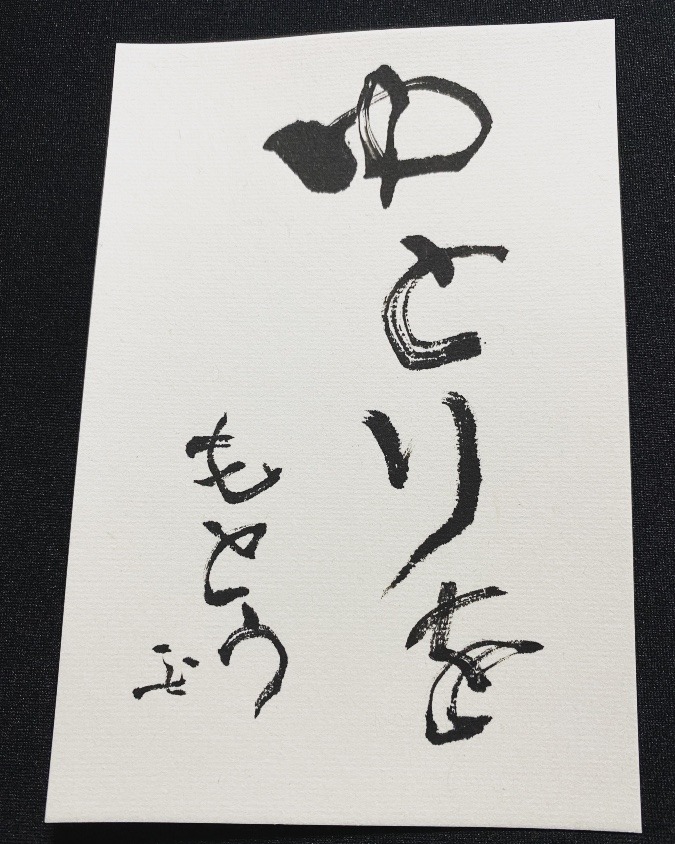 ゆとりを
もとう